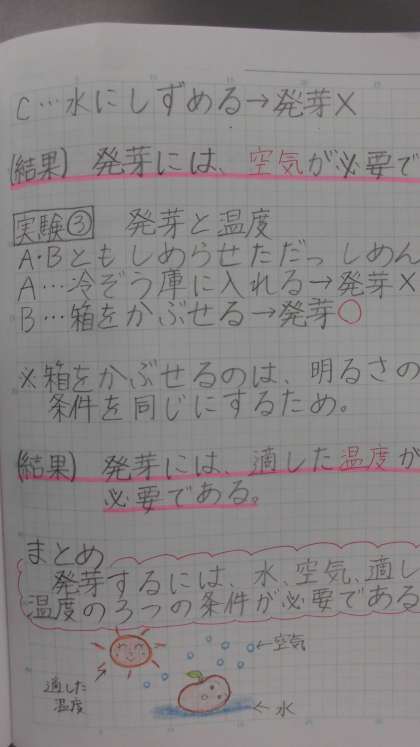 C…水にしずめる→発芽×
(結果) 発芽には、空気が必要で
実験③ 発芽と温度
A・Bともしめらせただっしめん
A…冷ぞう庫に入れる→発芽×
B…箱をかぶせる→発芽○
※箱をかぶせるのは、明るさの
条件を同じにするため。
(結果) 発芽には、適した温度が
必要である。
まとめ
発芽するには、水、空気、適し
温度の3つの条件が必要である
←空気
適した
温度
←水